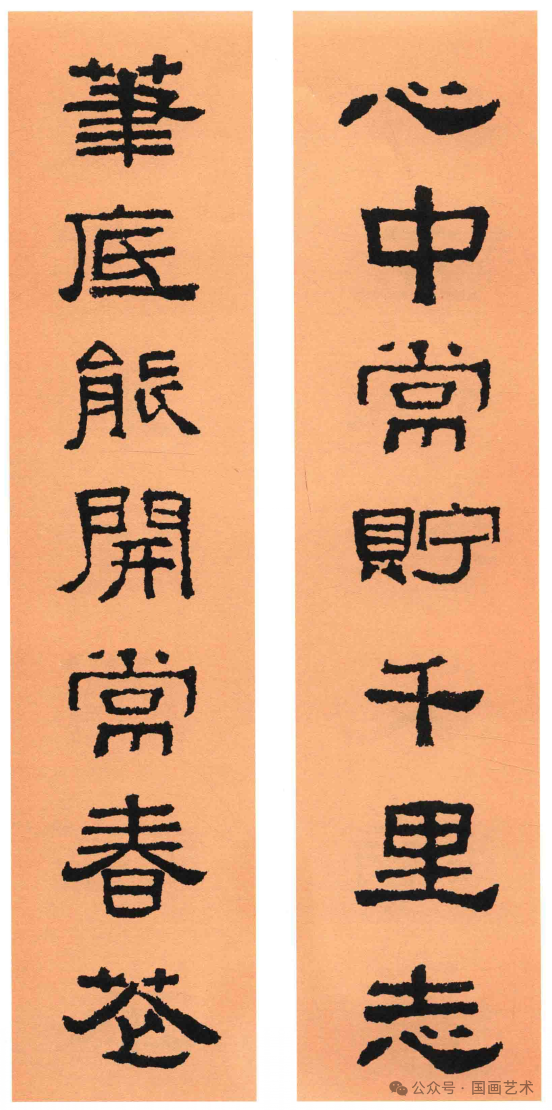 心中常貯千里志
筆底能開常春花
公众号·国画艺术